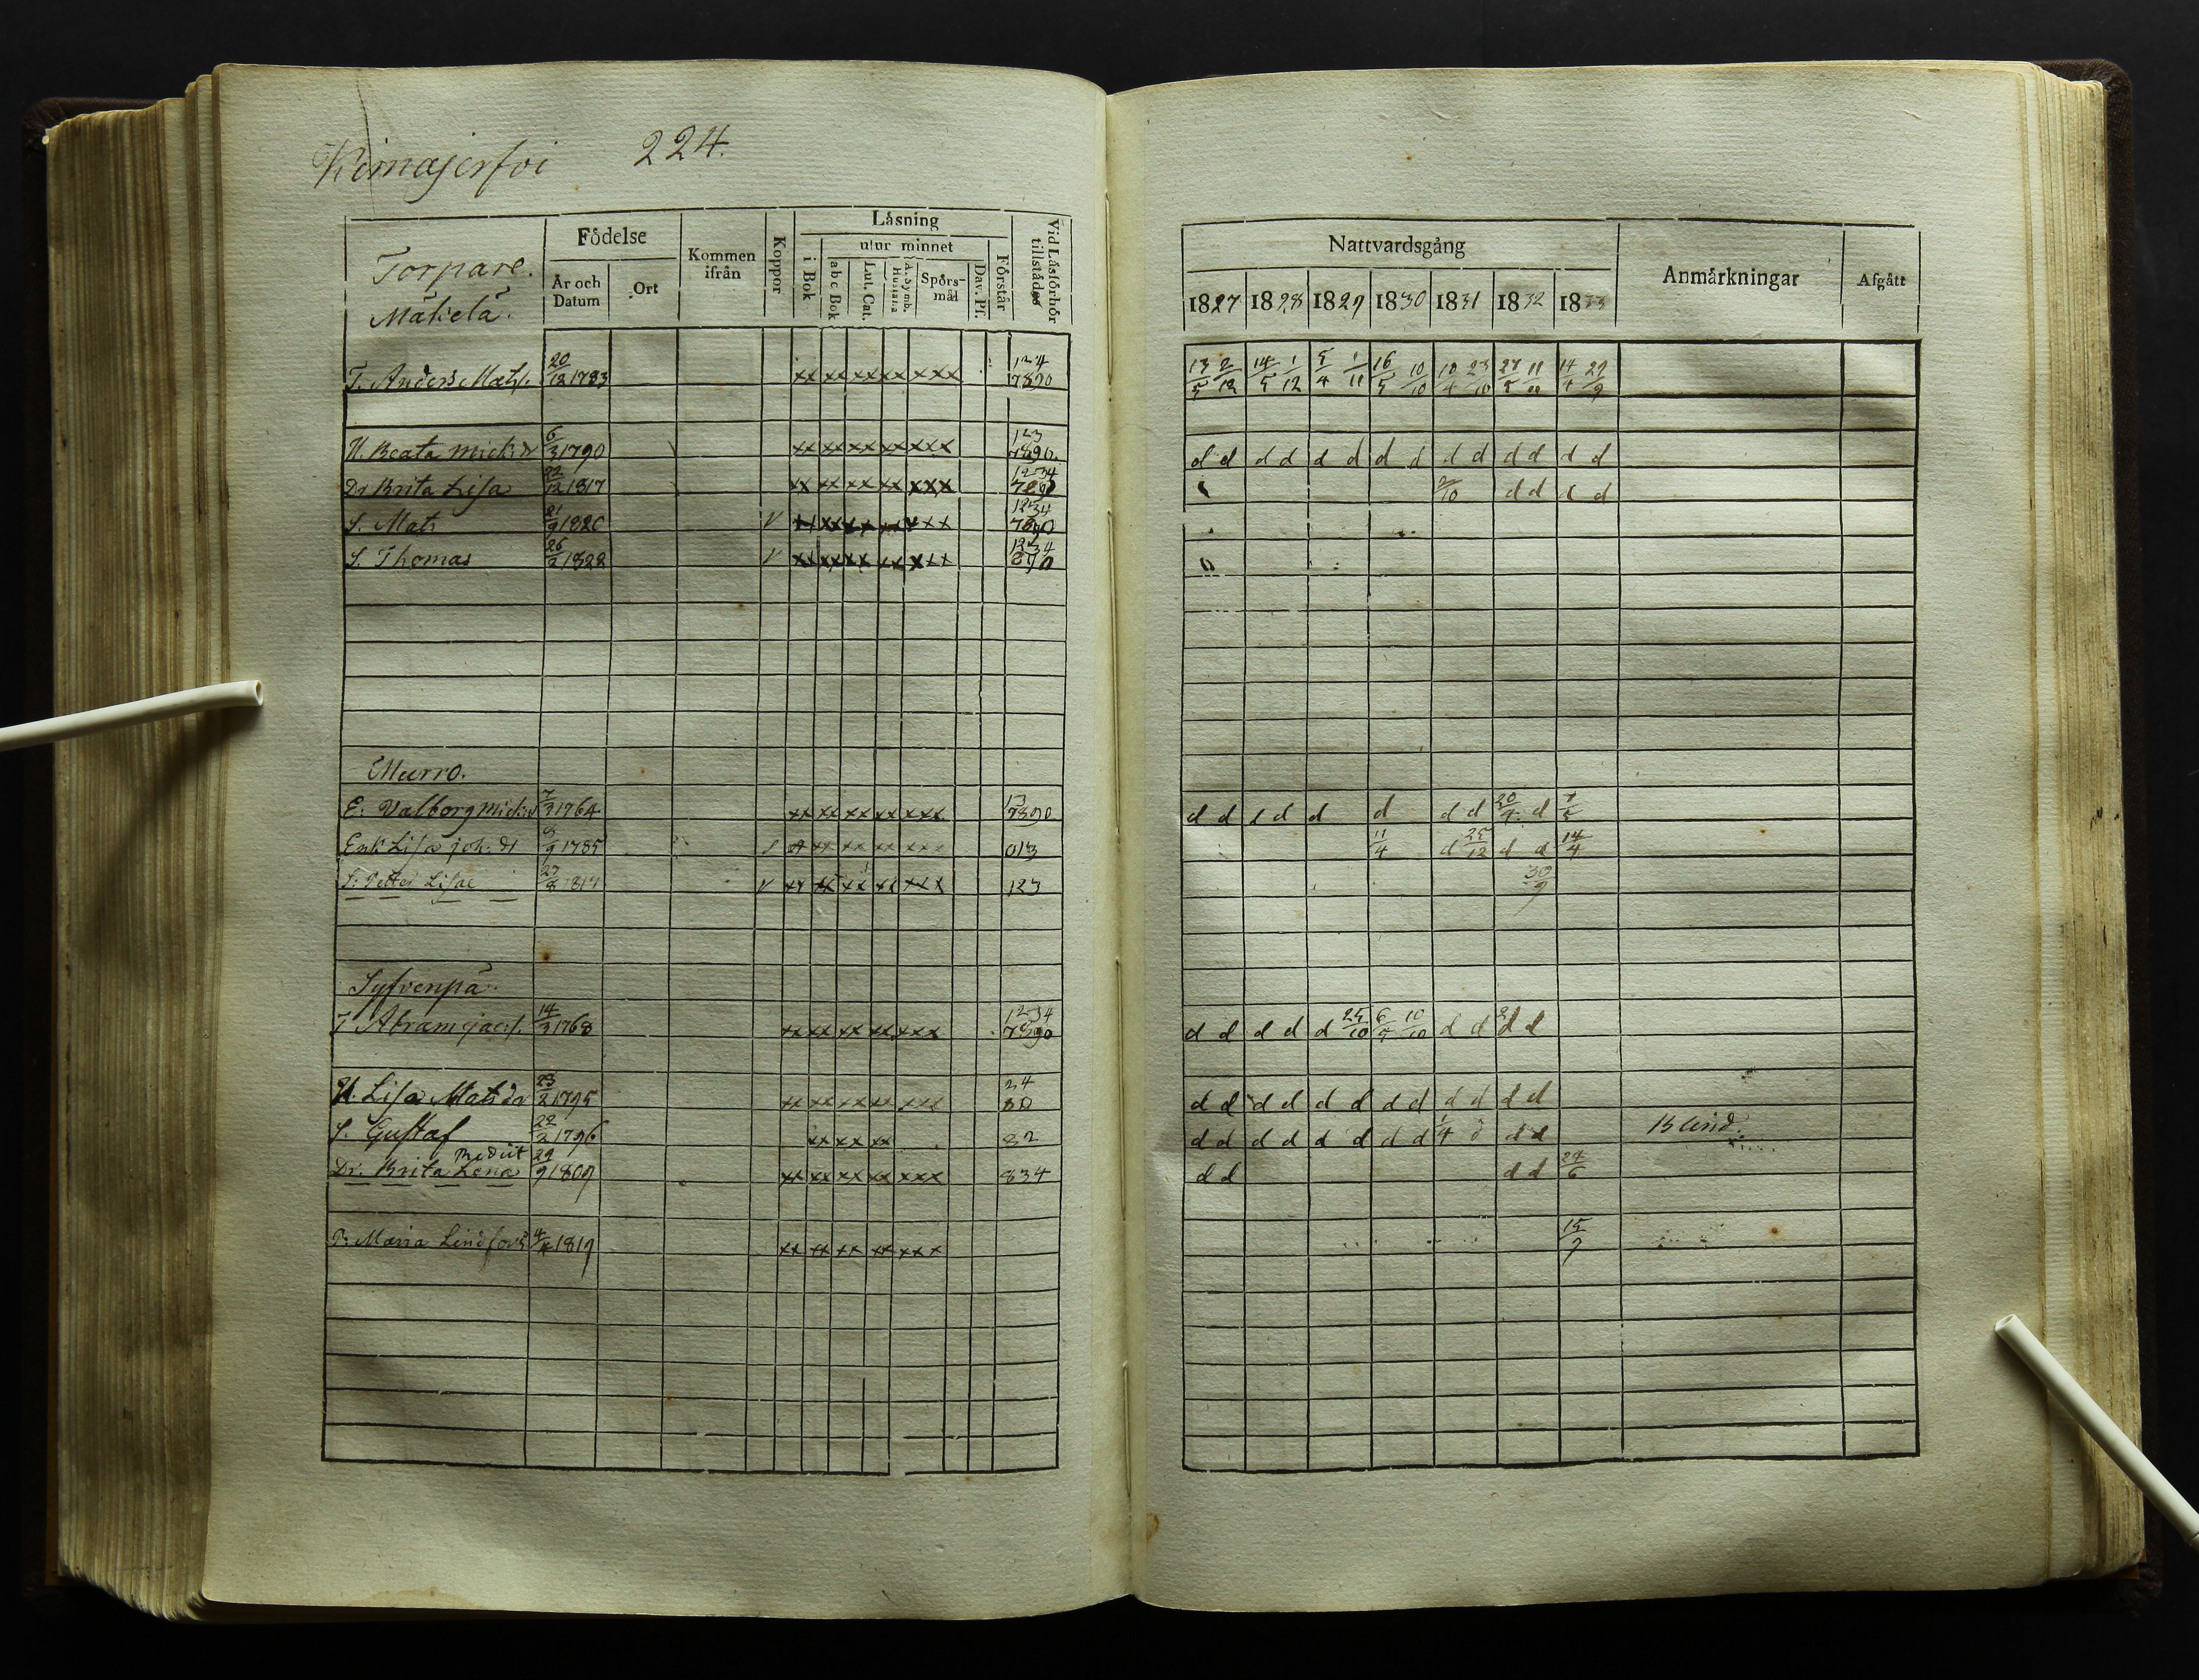 Kimajerfvi 224.
Födelse
Kommen ifrån
Koppor
Läsning
utur minnet
Förstår
Vid Läsförhör tillstädes
Torpare.
Mäkelä.
År och Datum
Ort
i Bok
abc Bok
Lut. Cat.
A. Symb. Hustafla
Spörsmål
Dav. Ps.
T. Anders Mats. 20/12 1783 xx xx xx xx xxx 124 7890
H. Beata Mick:dr 6/3 1790 xx xx xx xx xxx 123 7890.
Dr Brita Lisa 22/12 1817 xx xx xx xx xxx 1234 7890
S. Mats 21/9 1820 V xx xx xx xx xxx 1234 7890
S. Thomas 26/2 1822 V xx xx xx xx xxx 1234 890
Murro.
E: Valborg Mick:dr 7/3 1764 xx xx xx xx xxx 13 7890
Enk Lisa Joh:dr 8/9 1785 xx xx xx xx 013
S: Petter Lisae 27/8 1817 V xx xx xx xx xxx 123
Syfvenpä.
T Abram Jac:s. 14/3 1768 xx xx xx xx xxx 1234 7890
H. Lisa Matsdr 23/2 1795 xx xx xx xx xxx 24 80
S. Gustaf 22/2 1796 xx xx xx 82
Dr. Brita Lena 29/9 1809 xx xx xx xx xxx 834
P: Maria Lindfors 4/4 1819 xx xx xx xx xxx
Nattvardsgång
Anmärkningar
Afgått
1827 1828 1829 1830 1831 1832 1833
13/5 2/12 14/5 1/12 5/4 1/11 16/5 10/10 10/4 23/10 27/5 14/4 29/9
d d d d d d d d d d d d d d
2/10 d d d d
d d d d d d d d 20/4 d 7/5
11/4 d 25/12 d d 14/4
30/9
d d d d d 25/10 6/4 10/10 d d d d
d d d d d d d d d d d d
d d d d d d d d 1/4 d d d Blind.
d d d d 24/6
15/9